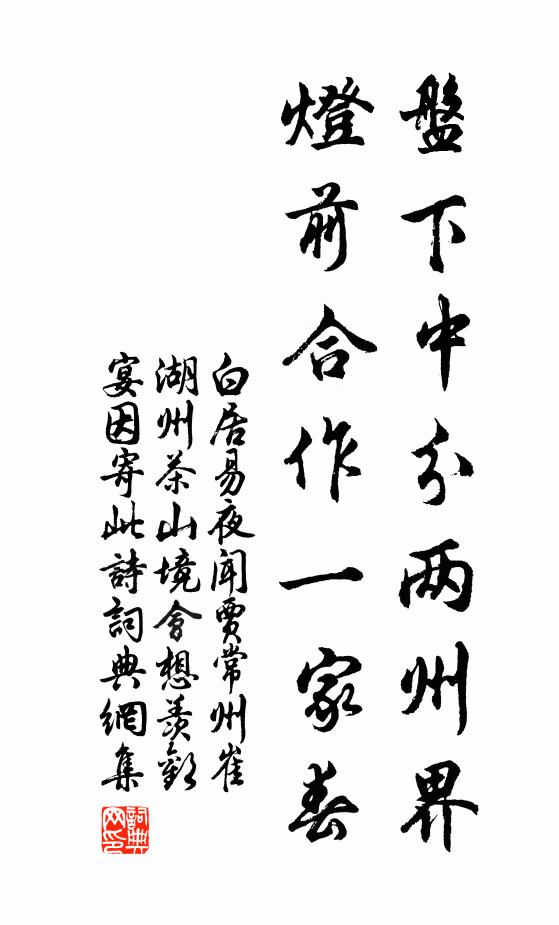 盤下中分两州界
燈前合作一家春
白居易夜聞賈常州崔
湖州茶山境會想羨歡
宴因寄此詩詞典網集
詞典网印